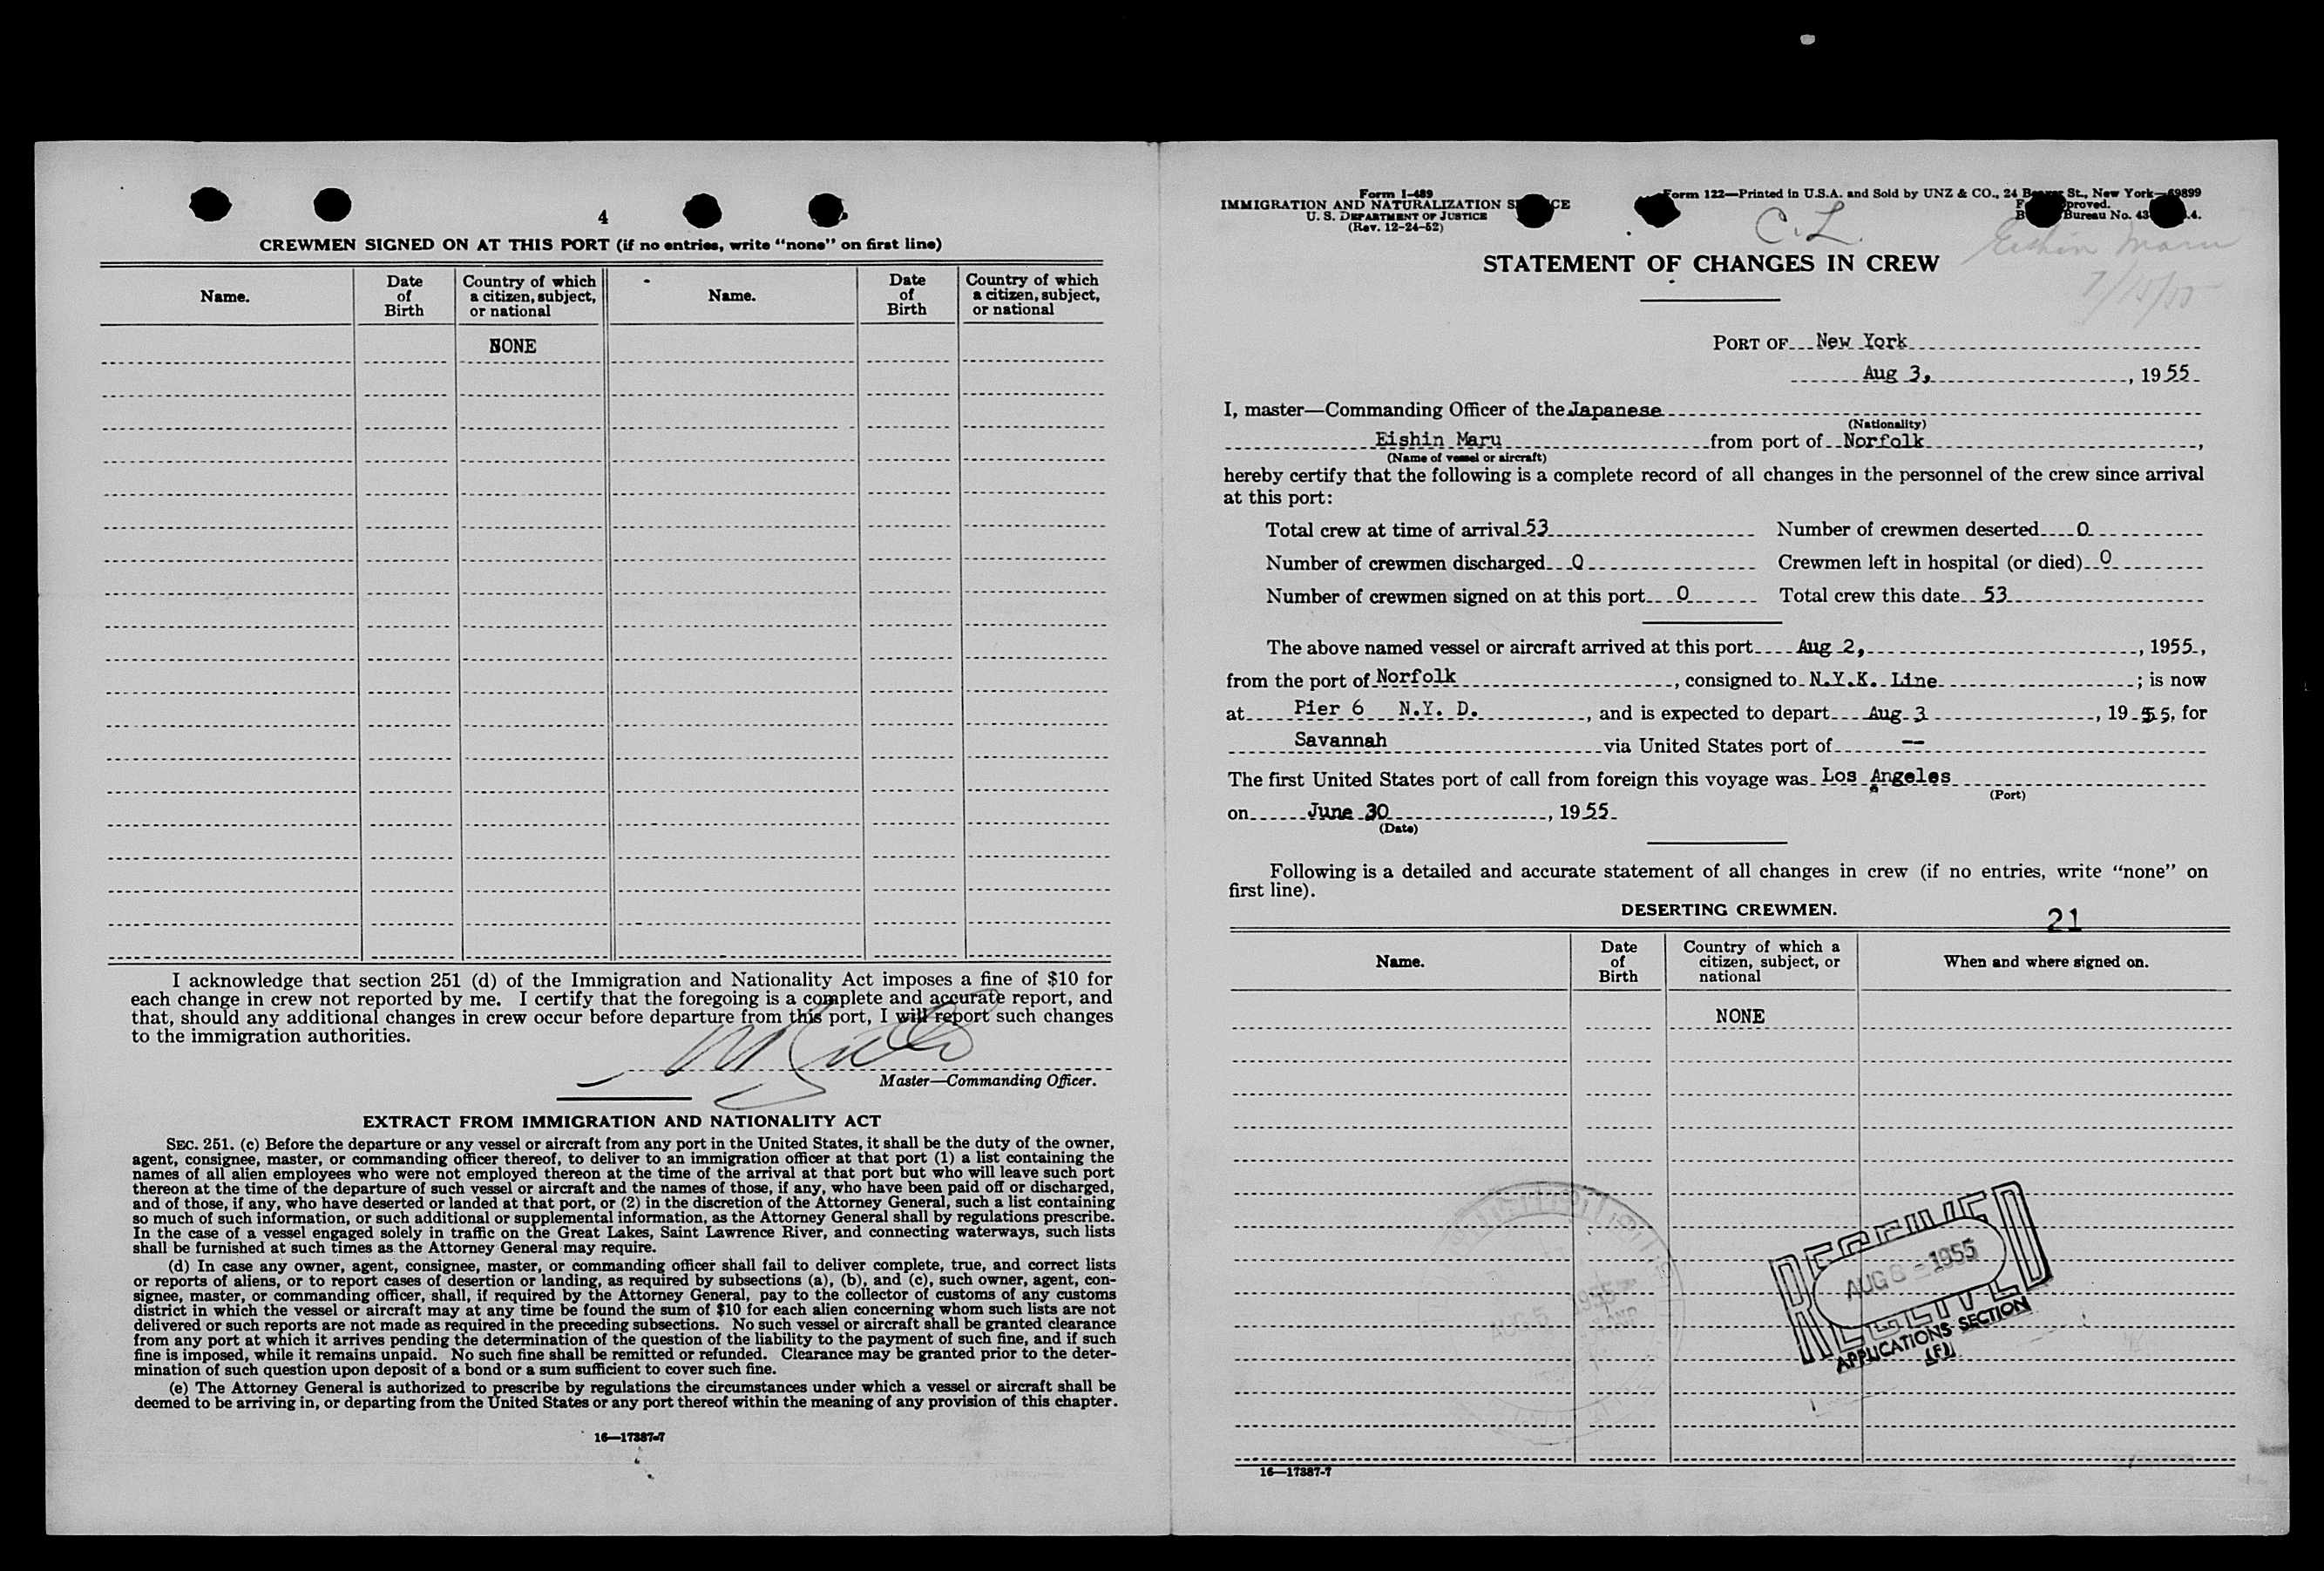 4
CREWMEN SIGNED ON AT THIS PORT (if no entries, write "none" on first line)
Name. Date of Birth Country of which a citizen, subject, or national Name. Date of Birth Country of which a citizen, subject, or national
NONE
I acknowledge that section 251 (d) of the Immigration and Nationality Act imposes a fine of $10 for
each change in crew not reported by me. I certify that the foregoing is a complete and accurate report, and
that, should any additional changes in crew occur before departure from this port, I will report such changes
to the immigration authorities.
Master—Commanding Officer.
EXTRACT FROM IMMIGRATION AND NATIONALITY ACT
SEC. 251. (c) Before the departure or any vessel or aircraft from any port in the United States, it shall be the duty of the owner,
agent, consignee, master, or commanding officer thereof, to deliver to an immigration officer at that port (1) a list containing the
names of all alien employees who were not employed thereon at the time of the arrival at that port but who will leave such port
thereon at the time of the departure of such vessel or aircraft and the names of those, if any, who have been paid off or discharged,
and of those, if any, who have deserted or landed at that port, or (2) in the discretion of the Attorney General, such a list containing
so much of such information, or such additional or supplemental information, as the Attorney General shall by regulations prescribe.
In the case of a vessel engaged solely in traffic on the Great Lakes, Saint Lawrence River, and connecting waterways, such lists
shall be furnished at such times as the Attorney General may require.
(d) In case any owner, agent, consignee, master, or commanding officer shall fail to deliver complete, true, and correct lists
or reports of aliens, or to report cases of desertion or landing, as required by subsections (a), (b), and (c), such owner, agent, con-
signee, master, or commanding officer, shall, if required by the Attorney General, pay to the collector of customs of any customs
district in which the vessel or aircraft may at any time be found the sum of $10 for each alien concerning whom such lists are not
delivered or such reports are not made as required in the preceding subsections. No such vessel or aircraft shall be granted clearance
from any port at which it arrives pending the determination of the question of the liability to the payment of such fine, and if such
fine is imposed, while it remains unpaid. No such fine shall be remitted or refunded. Clearance may be granted prior to the deter-
mination of such question upon deposit of a bond or a sum sufficient to cover such fine.
(e) The Attorney General is authorized to prescribe by regulations the circumstances under which a vessel or aircraft shall be
deemed to be arriving in, or departing from the United States or any port thereof within the meaning of any provision of this chapter.
16—17387-7
Form I-489
IMMIGRATION AND NATURALIZATION
U. S. DEPARTMENT OF JUSTICE
(Rev. 12-24-52)
Form 122—Printed in U.S.A. and Sold by UNZ & CO., 24 St., New York—69899
Bureau No. 43
C. L.
Eishin Maru
7/15/55
STATEMENT OF CHANGES IN CREW
PORT OF New York
Aug 3, , 1955
I, master—Commanding Officer of the Japanese
(Nationality)
Eishin Maru from port of Norfolk ,
(Name of vessel or aircraft)
hereby certify that the following is a complete record of all changes in the personnel of the crew since arrival
at this port:
Total crew at time of arrival 53 Number of crewmen deserted 0
Number of crewmen discharged 0 Crewmen left in hospital (or died) 0
Number of crewmen signed on at this port 0 Total crew this date 53
The above named vessel or aircraft arrived at this port Aug 2, , 1955 ,
from the port of Norfolk , consigned to N.Y.K. Line ; is now
at Pier 6 N.Y. D. , and is expected to depart Aug 3 , 1955, for
Savannah via United States port of --
The first United States port of call from foreign this voyage was Los Angeles
(Port)
on June 30 , 1955
(Date)
Following is a detailed and accurate statement of all changes in crew (if no entries, write "none" on
first line).
DESERTING CREWMEN.
21
Name. Date of Birth Country of which a citizen, subject, or national When and where signed on.
NONE
AUG 5 1955
RECEIVED
AUG 8 - 1955
APPLICATIONS SECTION
(F)
16—17387-7